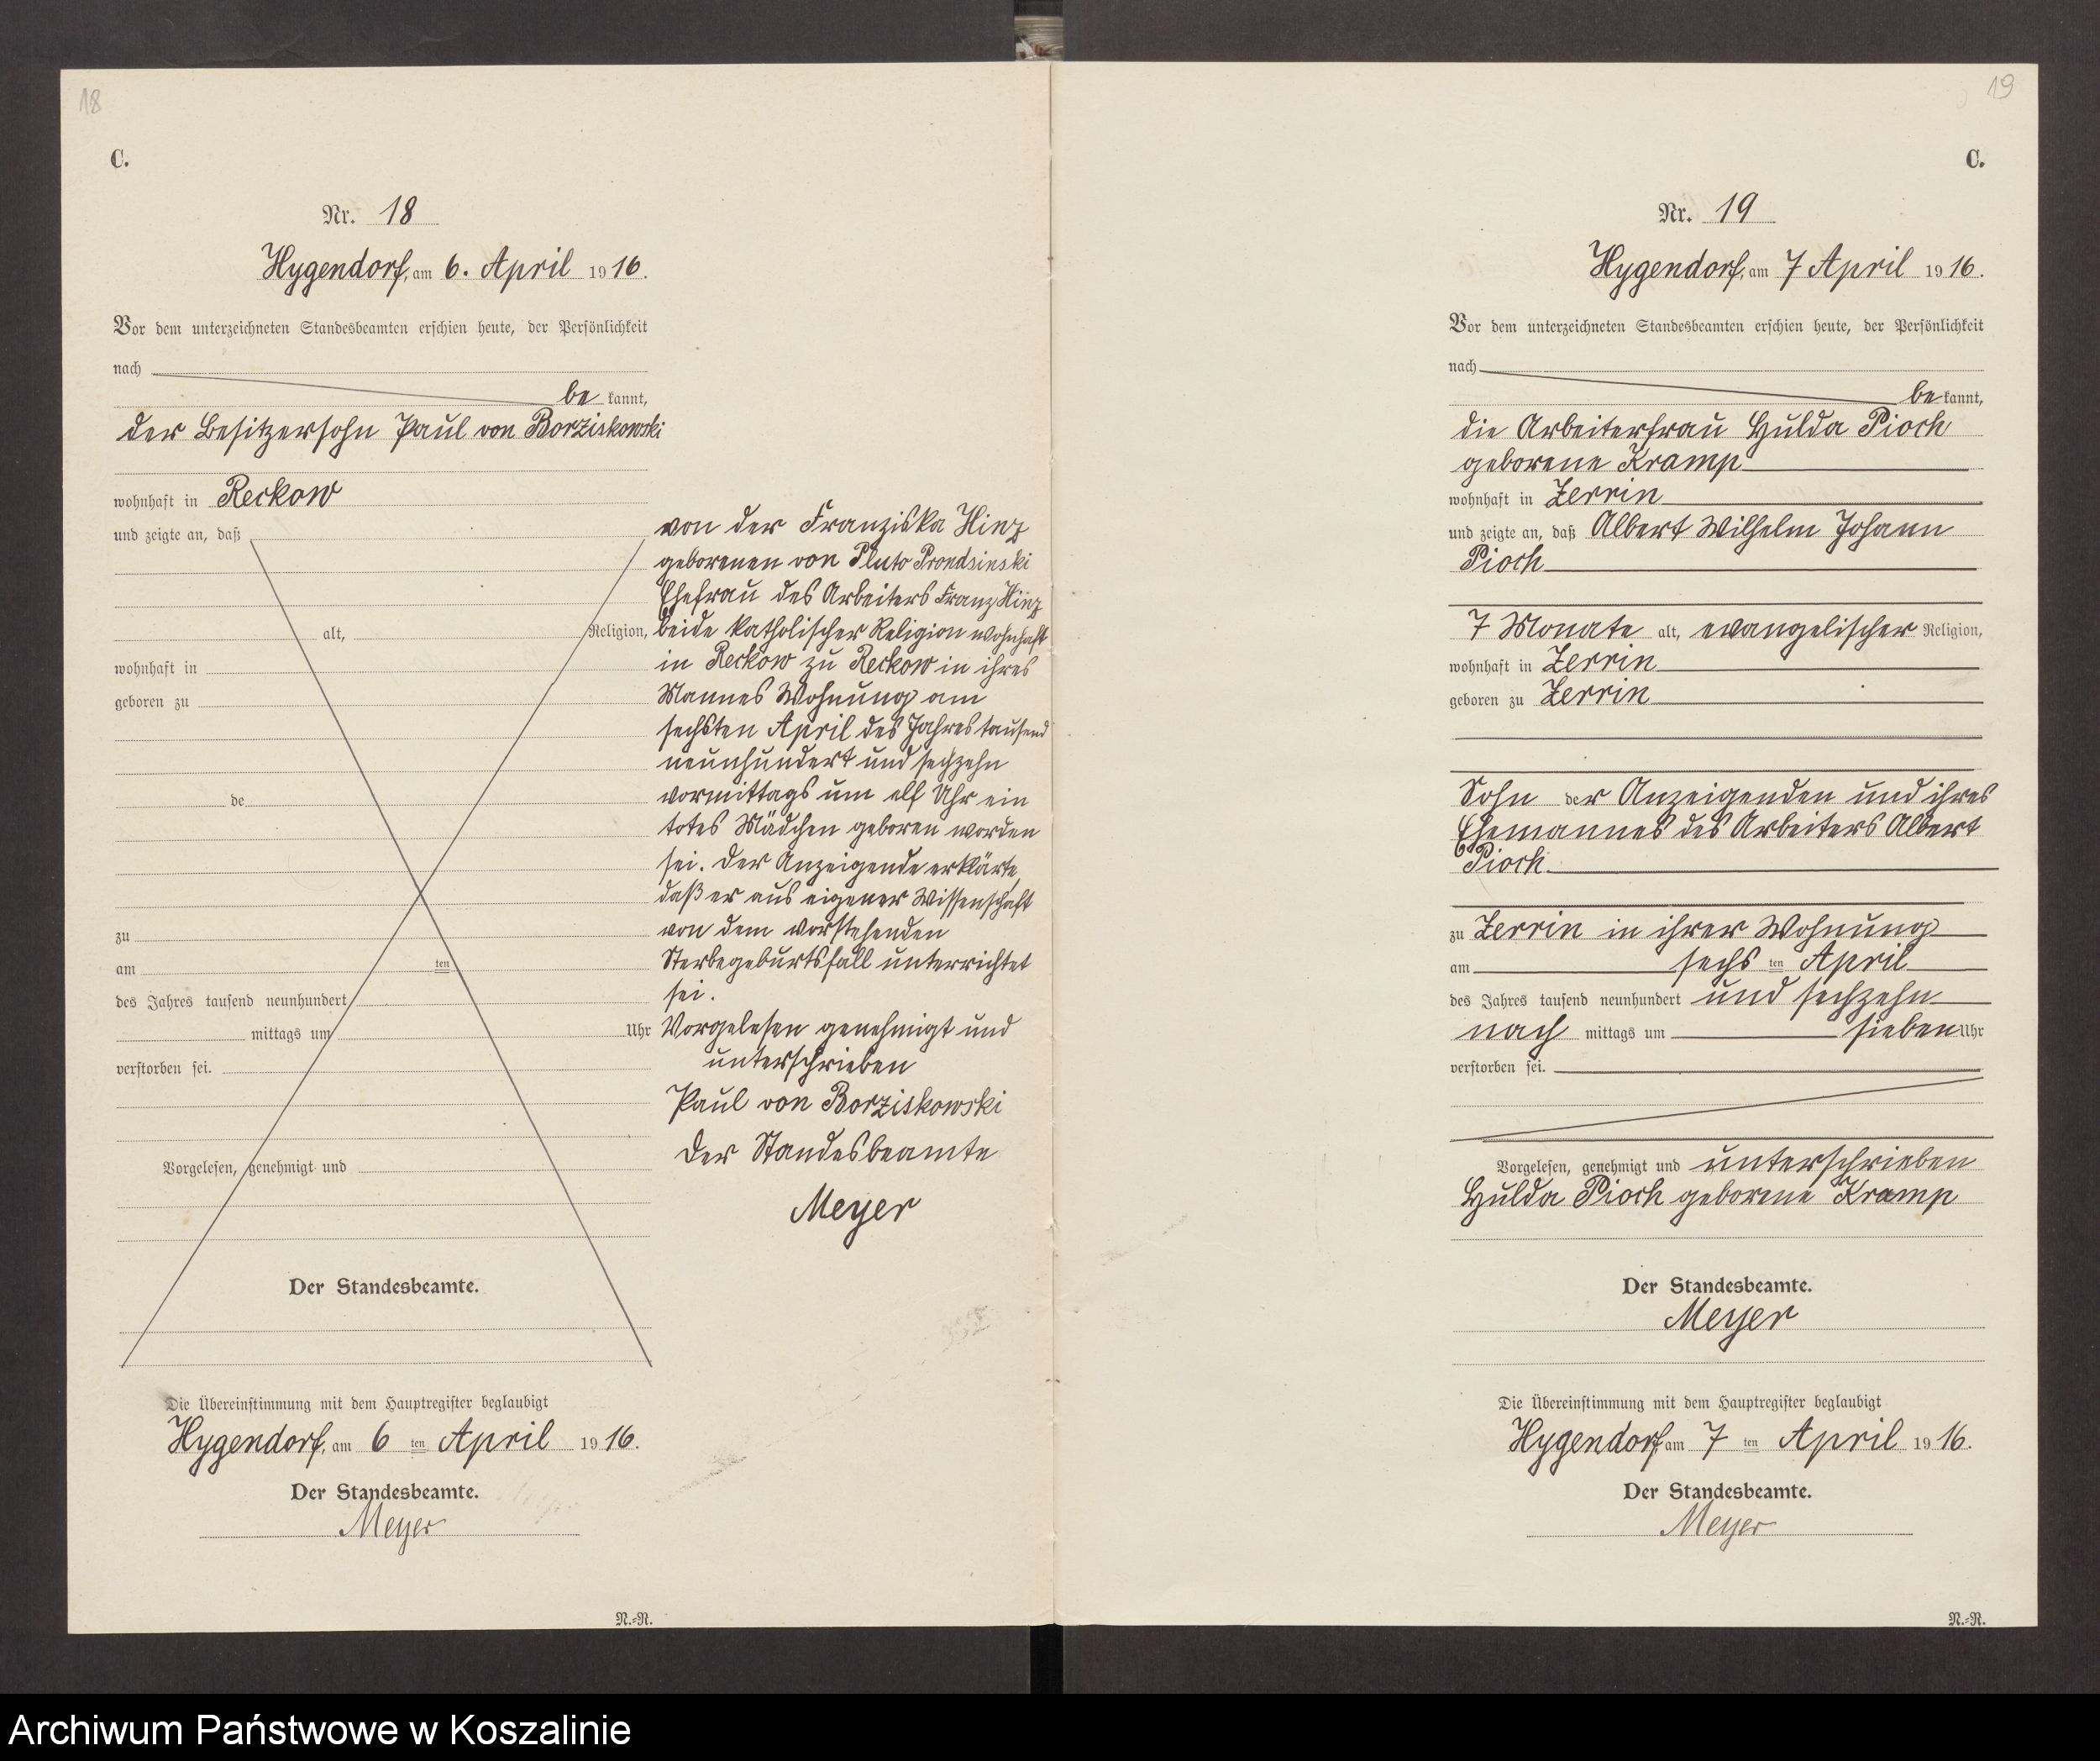 18
C.
Nr. 18
Hygendorf, am 6. April 1916.
Vor dem unterzeichneten Standesbeamten erschien heute, der Persönlichkeit
nach
be kannt,
der Besitzersohn Paul von Borziskowski
wohnhaft in Reckow
und zeigte an, daß
alt, Religion,
wohnhaft in
geboren zu
de
zu
am ten
des Jahres tausend neunhundert
mittags um Uhr
verstorben sei.
Vorgelesen, genehmigt und
Der Standesbeamte.
von der Franziska Hinz
geborenen von Pluto Prondsinski
Ehefrau des Arbeiters Franz Hinz
beide katholischer Religion wohnhaft
in Reckow zu Reckow in ihres
Mannes Wohnung am
sechsten April des Jahres tausend
neunhundert und sechzehn
vormittags um elf Uhr ein
totes Mädchen geboren worden
sei. Der Anzeigende erklärte,
daß er aus eigener Wissenschaft
von dem vorstehenden
Sterbegeburtsfall unterrichtet
sei.
Vorgelesen genehmigt und
unterschrieben
Paul von Borziskowski
Der Standesbeamte
Meyer
Die Übereinstimmung mit dem Hauptregister beglaubigt
Hygendorf, am 6 ten April 1916.
Der Standesbeamte.
Meyer
N.-R.
19
C.
Nr. 19
Hygendorf, am 7 April 1916.
Vor dem unterzeichneten Standesbeamten erschien heute, der Persönlichkeit
nach
be kannt,
die Arbeiterfrau Hulda Pioch
geborene Kramp
wohnhaft in Zerrin
und zeigte an, daß Albert Wilhelm Johann
Pioch
7 Monate alt, evangelischer Religion,
wohnhaft in Zerrin
geboren zu Zerrin
Sohn der Anzeigenden und ihres
Ehemannes des Arbeiters Albert
Pioch.
zu Zerrin in ihrer Wohnung
am sechs ten April
des Jahres tausend neunhundert und sechzehn
nach mittags um sieben Uhr
verstorben sei.
Vorgelesen, genehmigt und unterschrieben
Hulda Pioch geborene Kramp
Der Standesbeamte.
Meyer
Die Übereinstimmung mit dem Hauptregister beglaubigt
Hygendorf, am 7 ten April 1916.
Der Standesbeamte.
Meyer
N.-R.
Archiwum Państwowe w Koszalinie